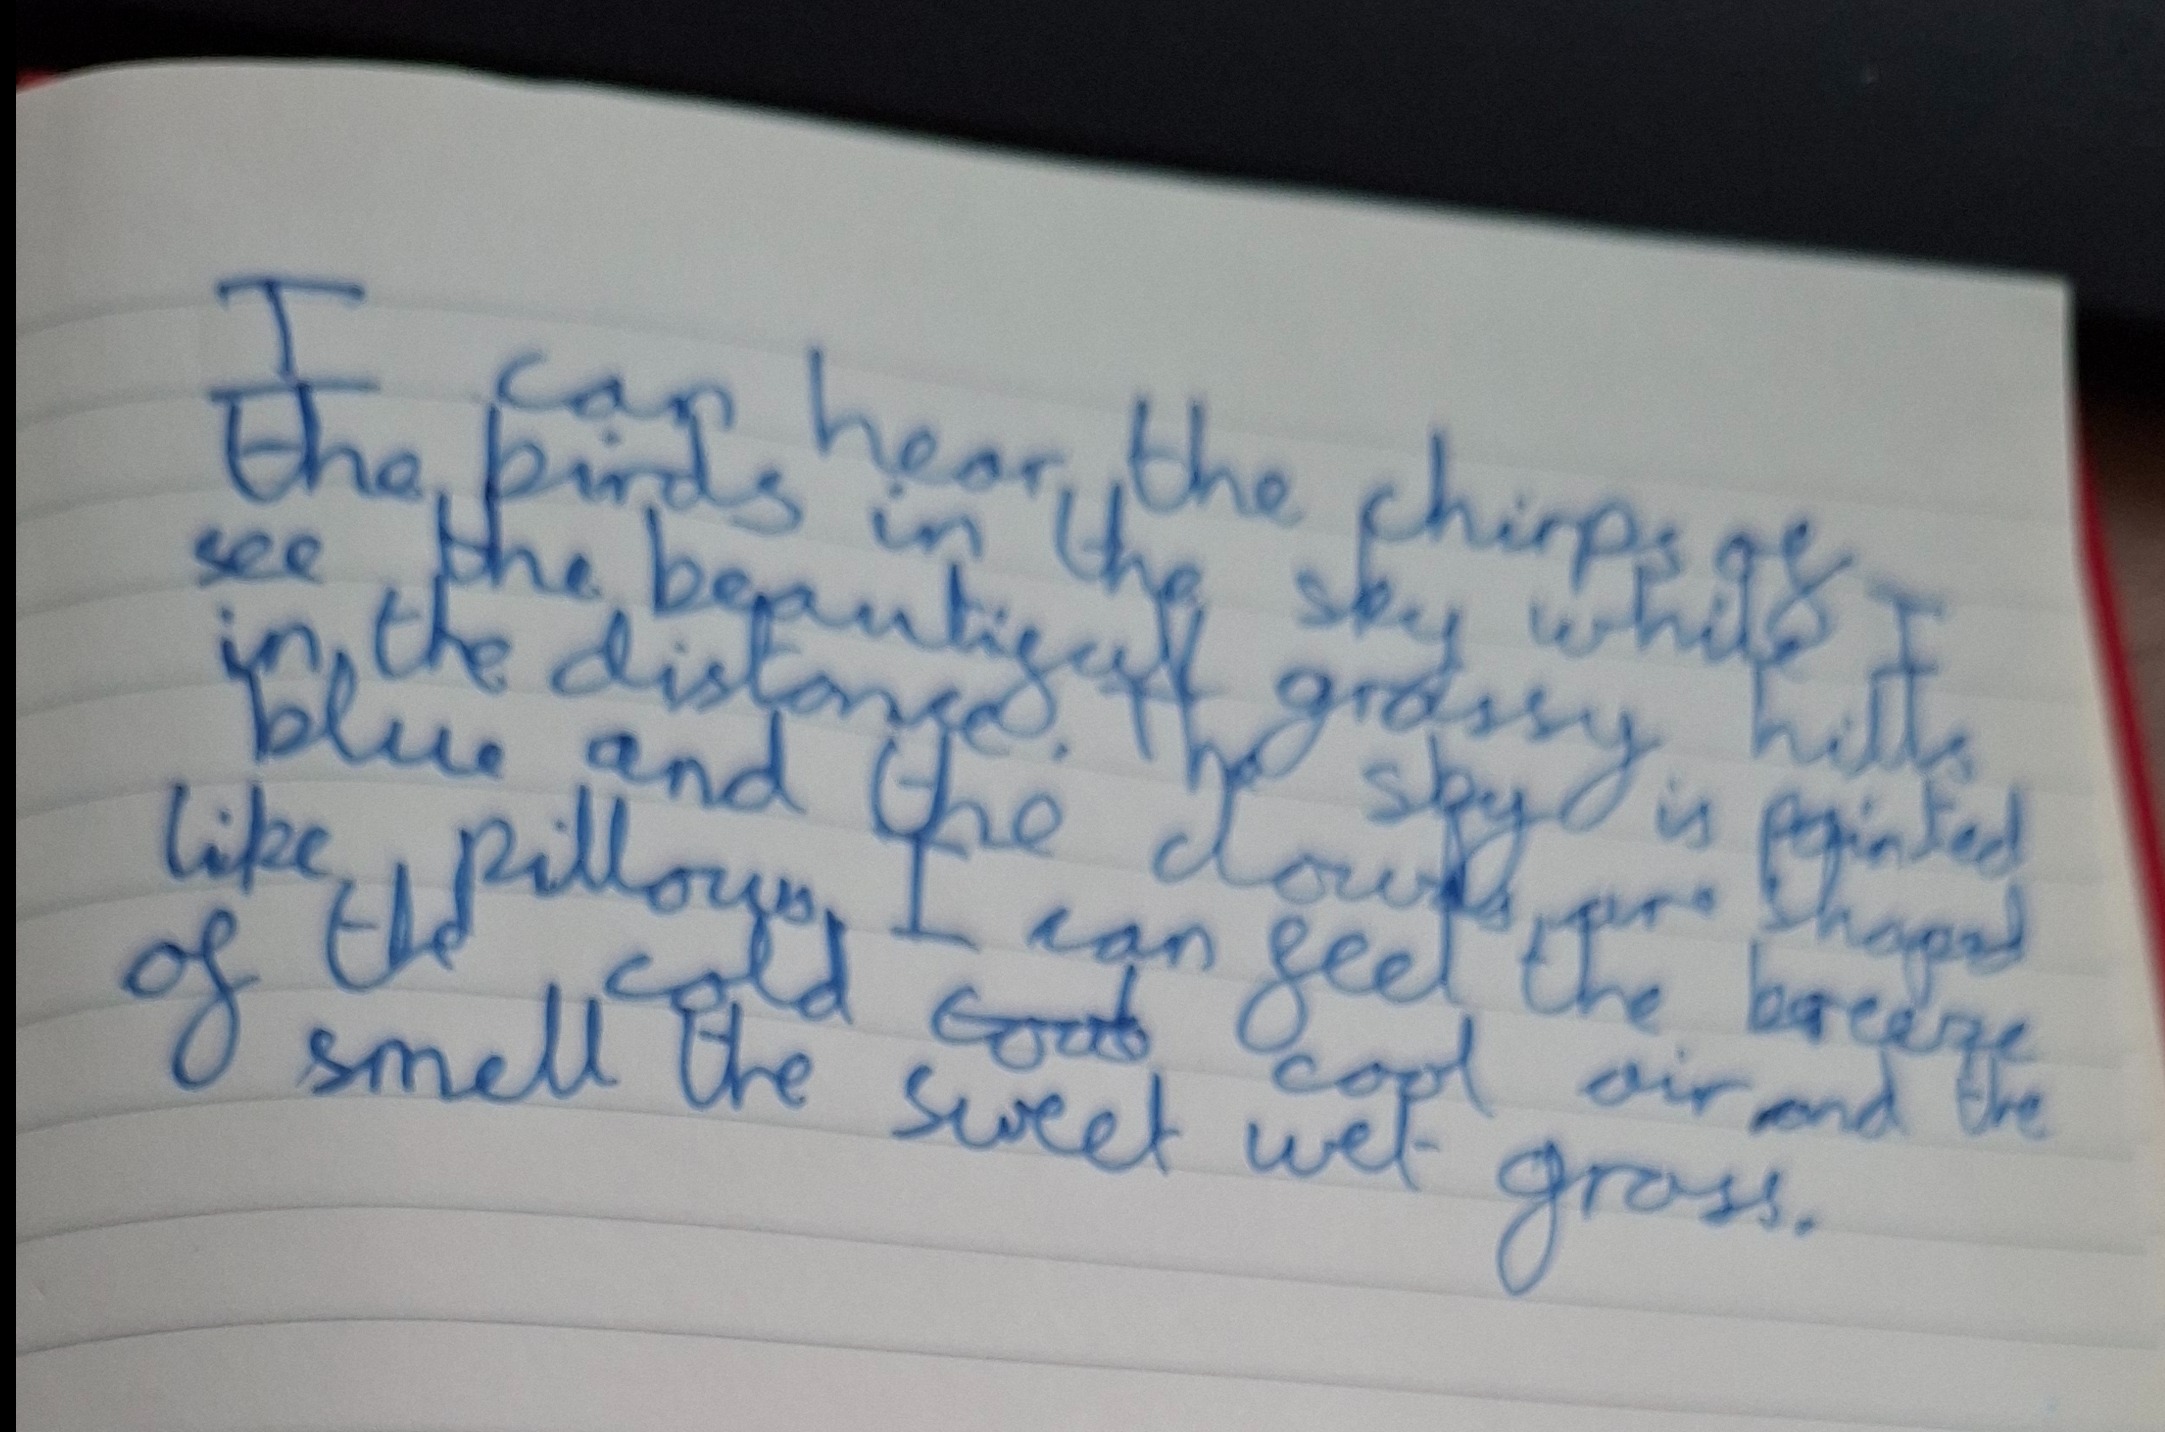 I can hear the chirps of
the birds in the sky while I
see the beautiful grassy hills
in the distance. The sky is painted
blue and the clouds are shaped
like pillows, I can feel the breeze
of the cold cool air and the
smell the sweet wet grass.